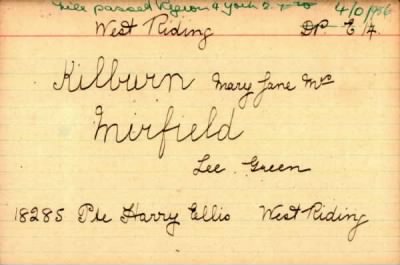 File passed Region 4 York 2.
4/0/986
West Riding DP. E/4.
Kilburn Mary Jane Mrs
Mirfield
Lee Green
18285 Pte Harry Ellis West Riding